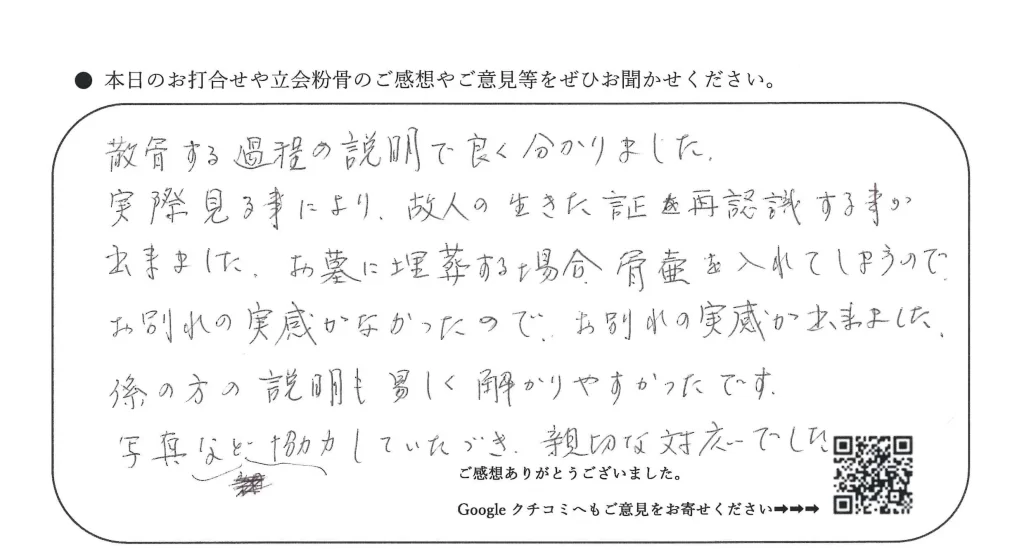 ● 本日のお打合せや立会粉骨のご感想やご意見等をぜひお聞かせください。
散骨する過程の説明で良く分かりました。
実際見る事により、故人の生きた証を再認識する事が
出来ました。お墓に埋葬する場合、骨壷を入れてしまうので、
お別れの実感がなかったので、お別れの実感が出来ました。
係の方の説明も易しく解かりやすかったです。
写真など協力していたづき、親切な対応でした
ご感想ありがとうございました。
Google クチコミへもご意見をお寄せください➡➡➡